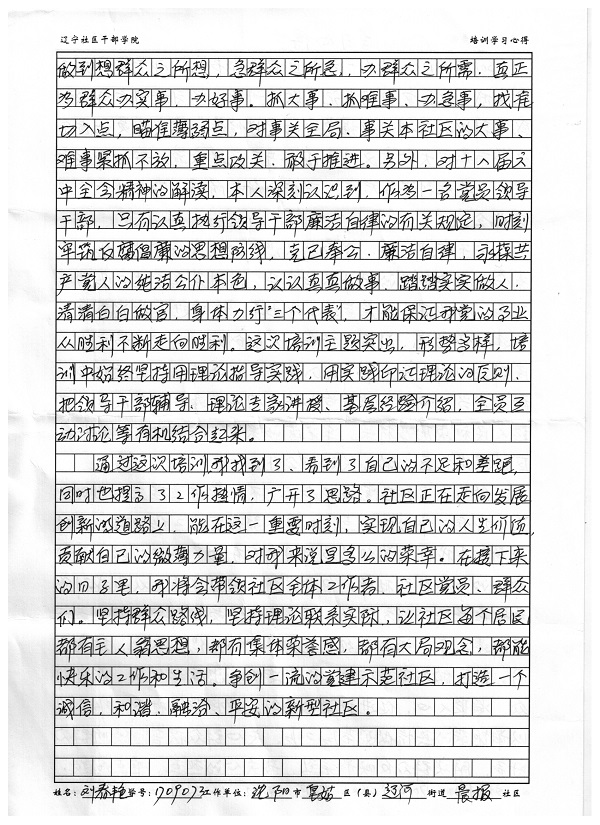 辽宁社区干部学院 培训学习心得
做到想群众之所想，急群众之所急，办群众之所需，真正
为群众办实事，办好事。抓大事、抓难事、办急事，找准
切入点，瞄准薄弱点，对事关全局、事关本社区的大事、
难事紧抓不放，重点攻关，敢于推进。另外，对十八届六
中全会精神的解读，本人深刻认识到，作为一名党员领导
干部，只有认真执行领导干部廉洁自律的有关规定，时刻
牢筑反腐倡廉的思想防线，克己奉公，廉洁自律，永葆共
产党人的纯洁公仆本色，认认真真做事，踏踏实实做人，
清清白白做官，身体力行"三个代表"，才能保证我党的事业
从胜利不断走向胜利。这次培训主题突出，形势多样，培
训中始终坚持用理论指导实践，用实践印证理论的原则，
把领导干部辅导、理论专家讲授、基层经验介绍，全员互
动讨论等有机结合起来。
通过这次培训我找到了、看到了自己的不足和差距，
同时也提高了工作热情，广开了思路。社区正在走向发展
创新的道路上，能在这一重要时刻，实现自己的人生价值，
贡献自己的微薄力量，对我来说是多么的荣幸。在接下来
的日子里，我将会带领社区全体工作者，社区党员、群众
们。坚持群众路线，坚持理论联系实际，让社区每个居民
都有主人翁思想，都有集体荣誉感，都有大局观念，都能
快乐的工作和生活。争创一流的党建示范社区，打造一个
诚信、和谐、融洽、平安的新型社区。
姓名：刘春艳 学号：1709073 工作单位：沈阳市皇姑区（县）辽河 街道 晨报 社区